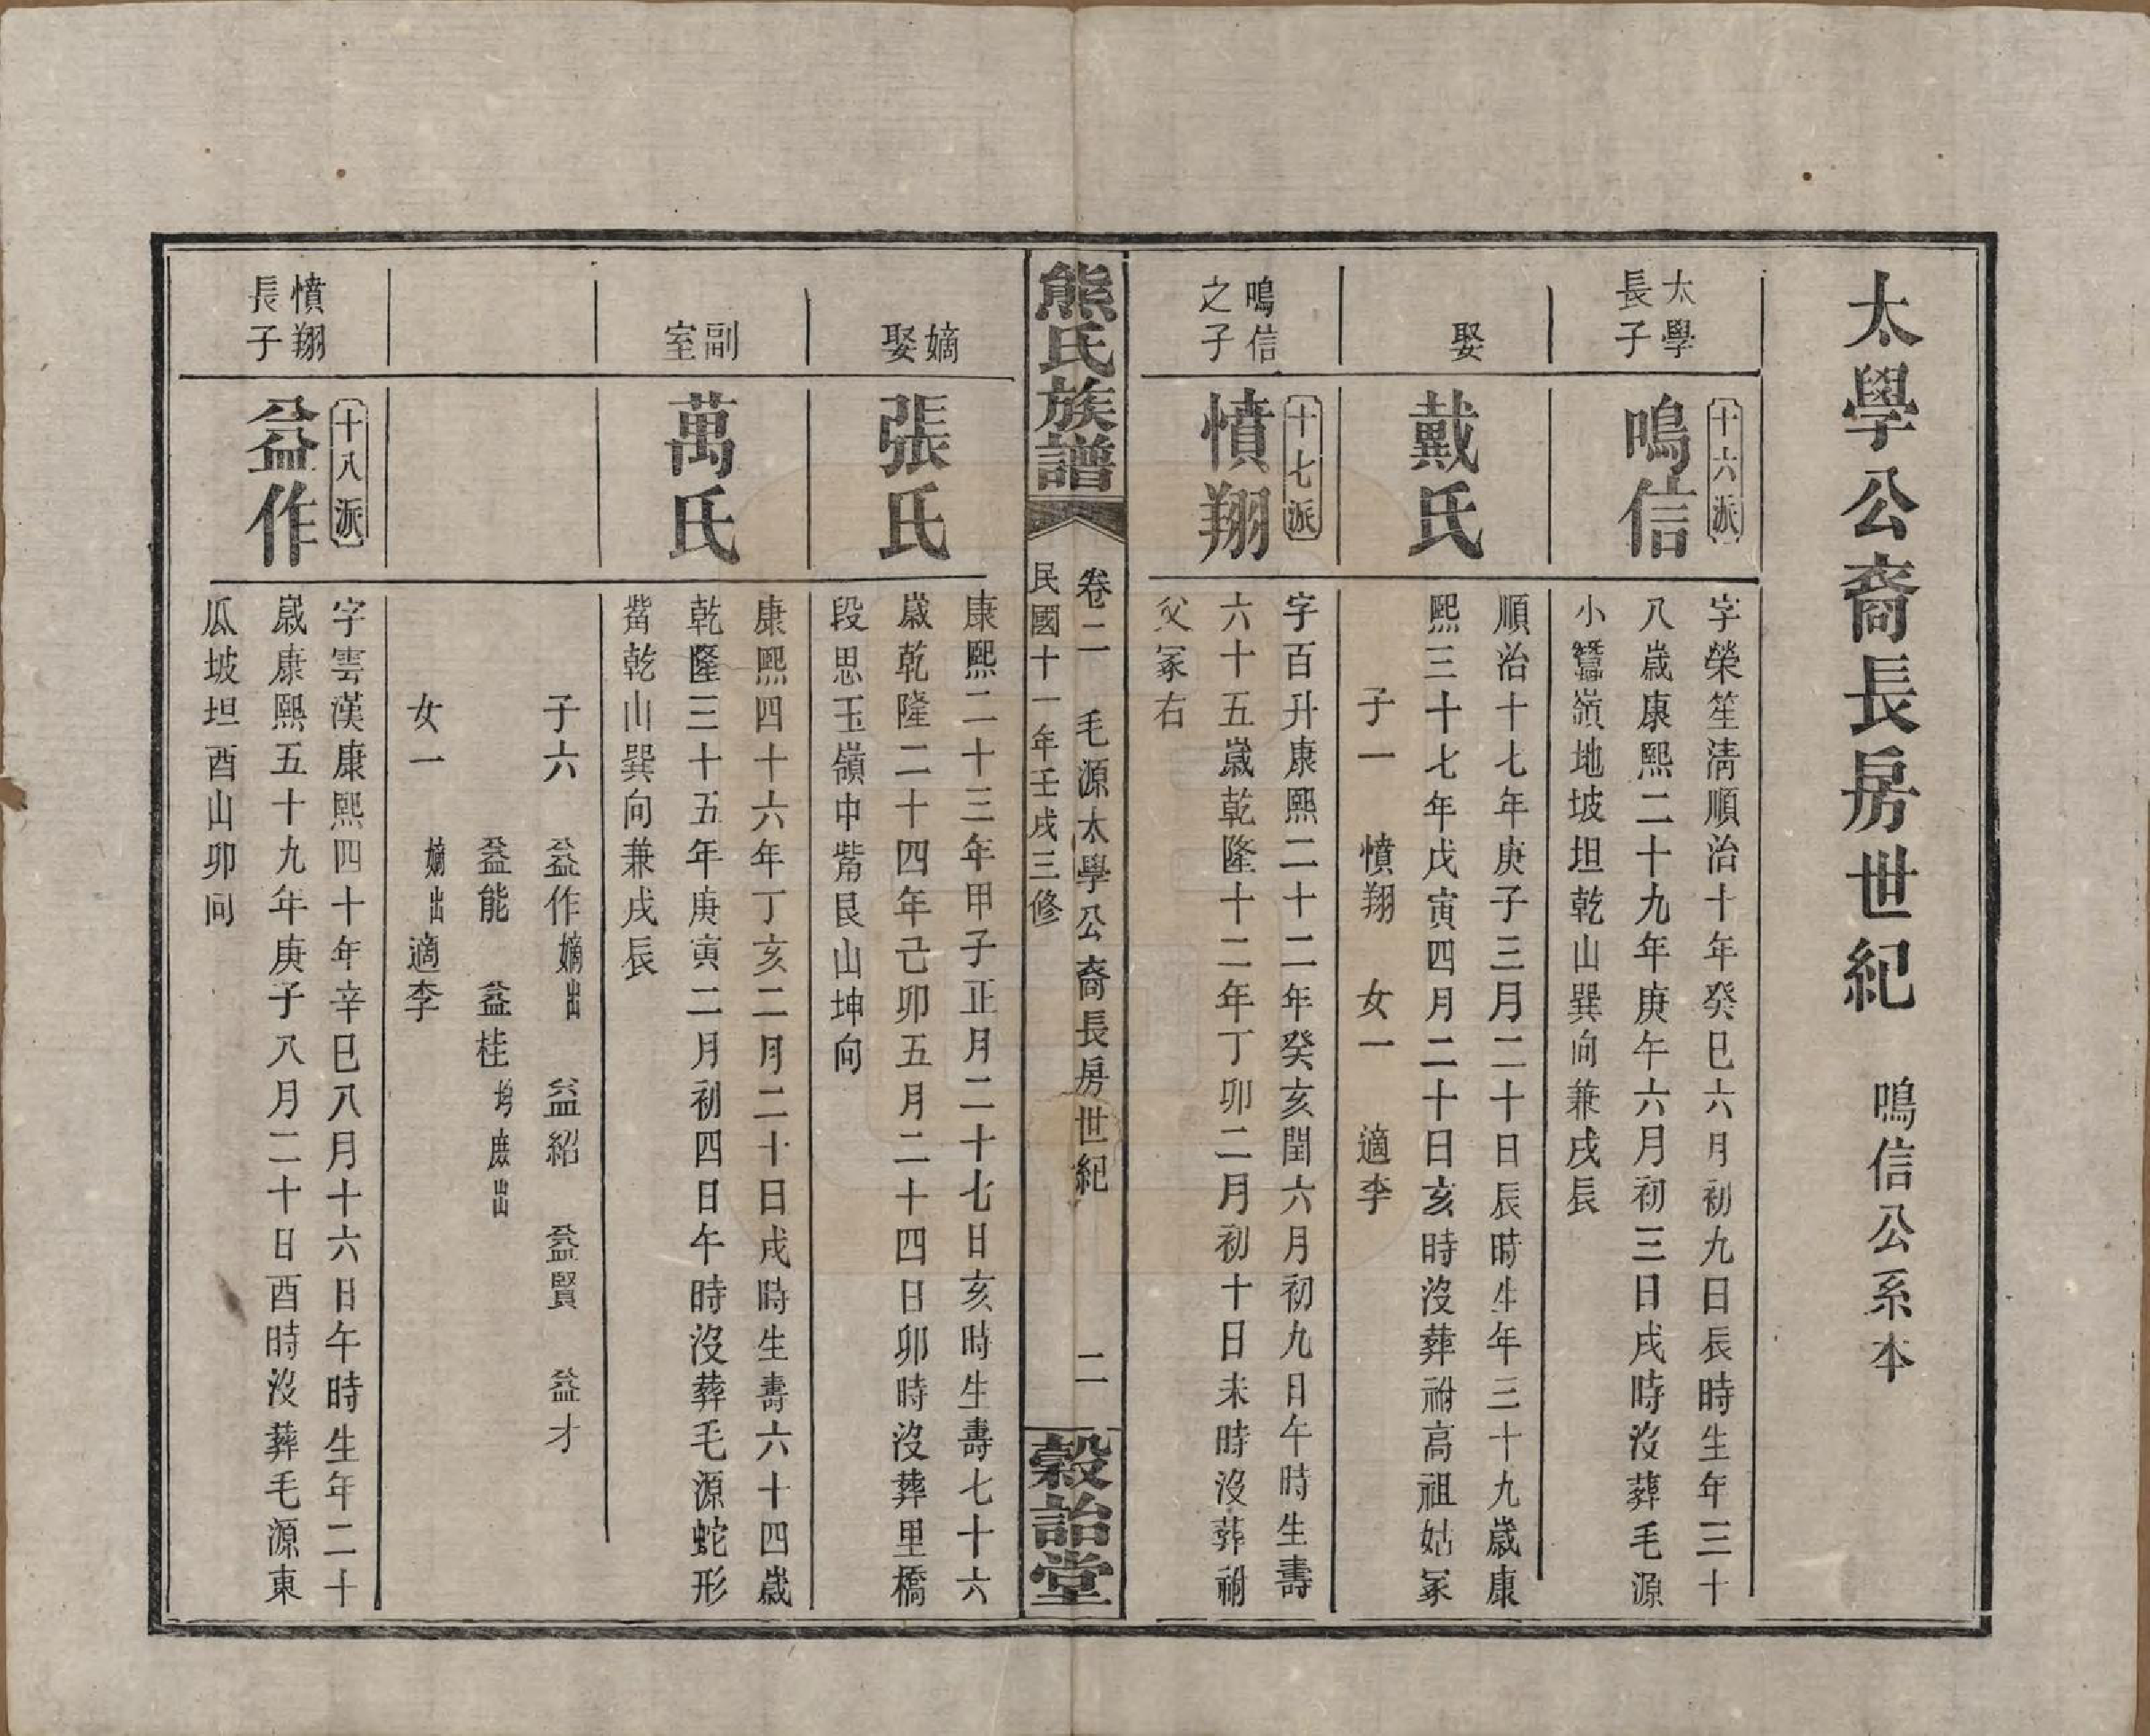 太學公裔長房世紀　鳴信公系本
太學
長子
十六派
鳴信
字榮笙清順治十年癸巳六月初九日辰時生年三十
八歲康熙二十九年庚午六月初三日戌時沒葬毛源
小鷰嶺地坡坦乾山巽向兼戌辰
娶
戴氏
順治十七年庚子三月二十日辰時生年三十九歲康
熙三十七年戊寅四月二十日亥時沒葬祔高祖姑冢
子一　憤翔　女一　適李
鳴信
之子
十七派
憤翔
字百升康熙二十二年癸亥閏六月初九日午時生壽
六十五歲乾隆十二年丁卯二月初十日未時沒葬祔
父冢右
熊氏族譜
卷二　毛源太學公裔長房世紀　二
民國十一年壬戌三修
穀詒堂
嫡
娶
張氏
康熙二十三年甲子正月二十七日亥時生壽七十六
歲乾隆二十四年己卯五月二十四日卯時沒葬里橋
段思玉嶺中觜艮山坤向
副
室
萬氏
康熙四十六年丁亥二月二十日戌時生壽六十四歲
乾隆三十五年庚寅二月初四日午時沒葬毛源蛇形
觜乾山巽向兼戌辰
子六　益作嫡出　益紹　益賢　益才
益能　益桂均庶出
女一　嫡出適李
憤翔
長子
十八派
益作
字雲漢康熙四十年辛巳八月十六日午時生年二十
歲康熙五十九年庚子八月二十日酉時沒葬毛源東
瓜坡坦酉山卯向